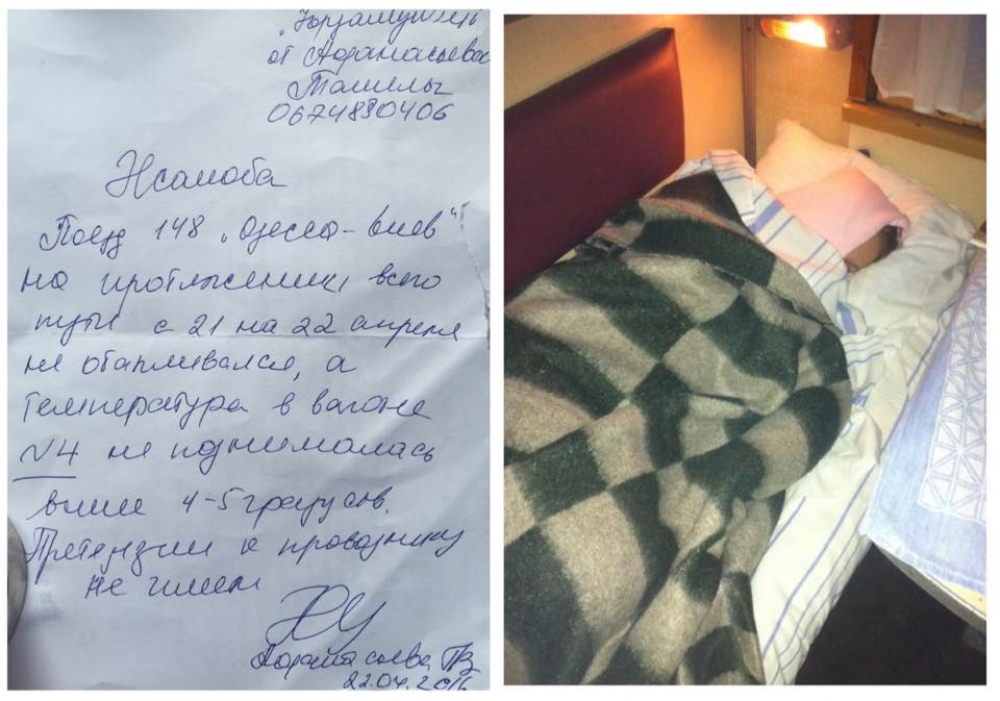 от Афанасьева
0674830406
Жалоба
Поезд 148 „Одесса-Киев“
на протяжении всего
пути с 21 на 22 апреля
не отапливался, а
температура в вагоне
N4 не поднималась
выше 4-5 градусов.
Претензии к проводнику
не имею
Афанасьева
22.04.2016